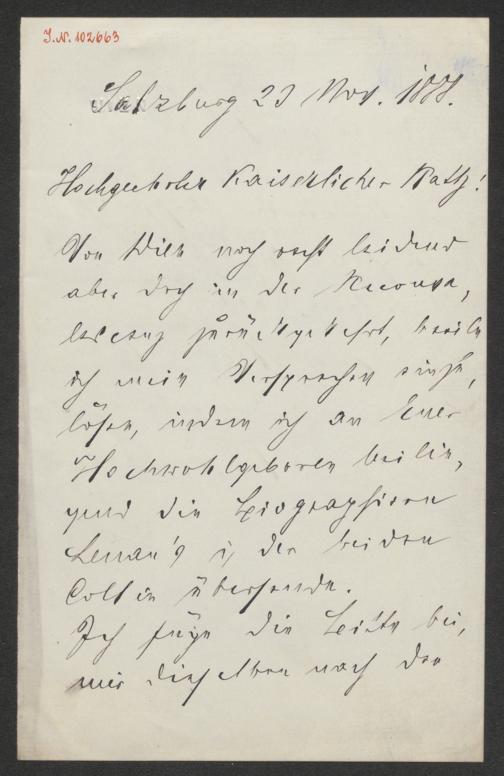 I.N. 102663
Salzburg 23 Nov. 1878.
Hochgeehrter Kaiserlicher Rath!
Von Wien noch recht leidend
aber doch in der Reconva,
lescenz zurückgekehrt, beeile
ich mein Versprechen einzu,
lösen, indem ich an Euer
Hochwohlgeboren beilie,
gend die Biographieen
Lenau's u. der beiden
Collin übersende.
Ich füge die Bitte bei,
mir dieselben nach der